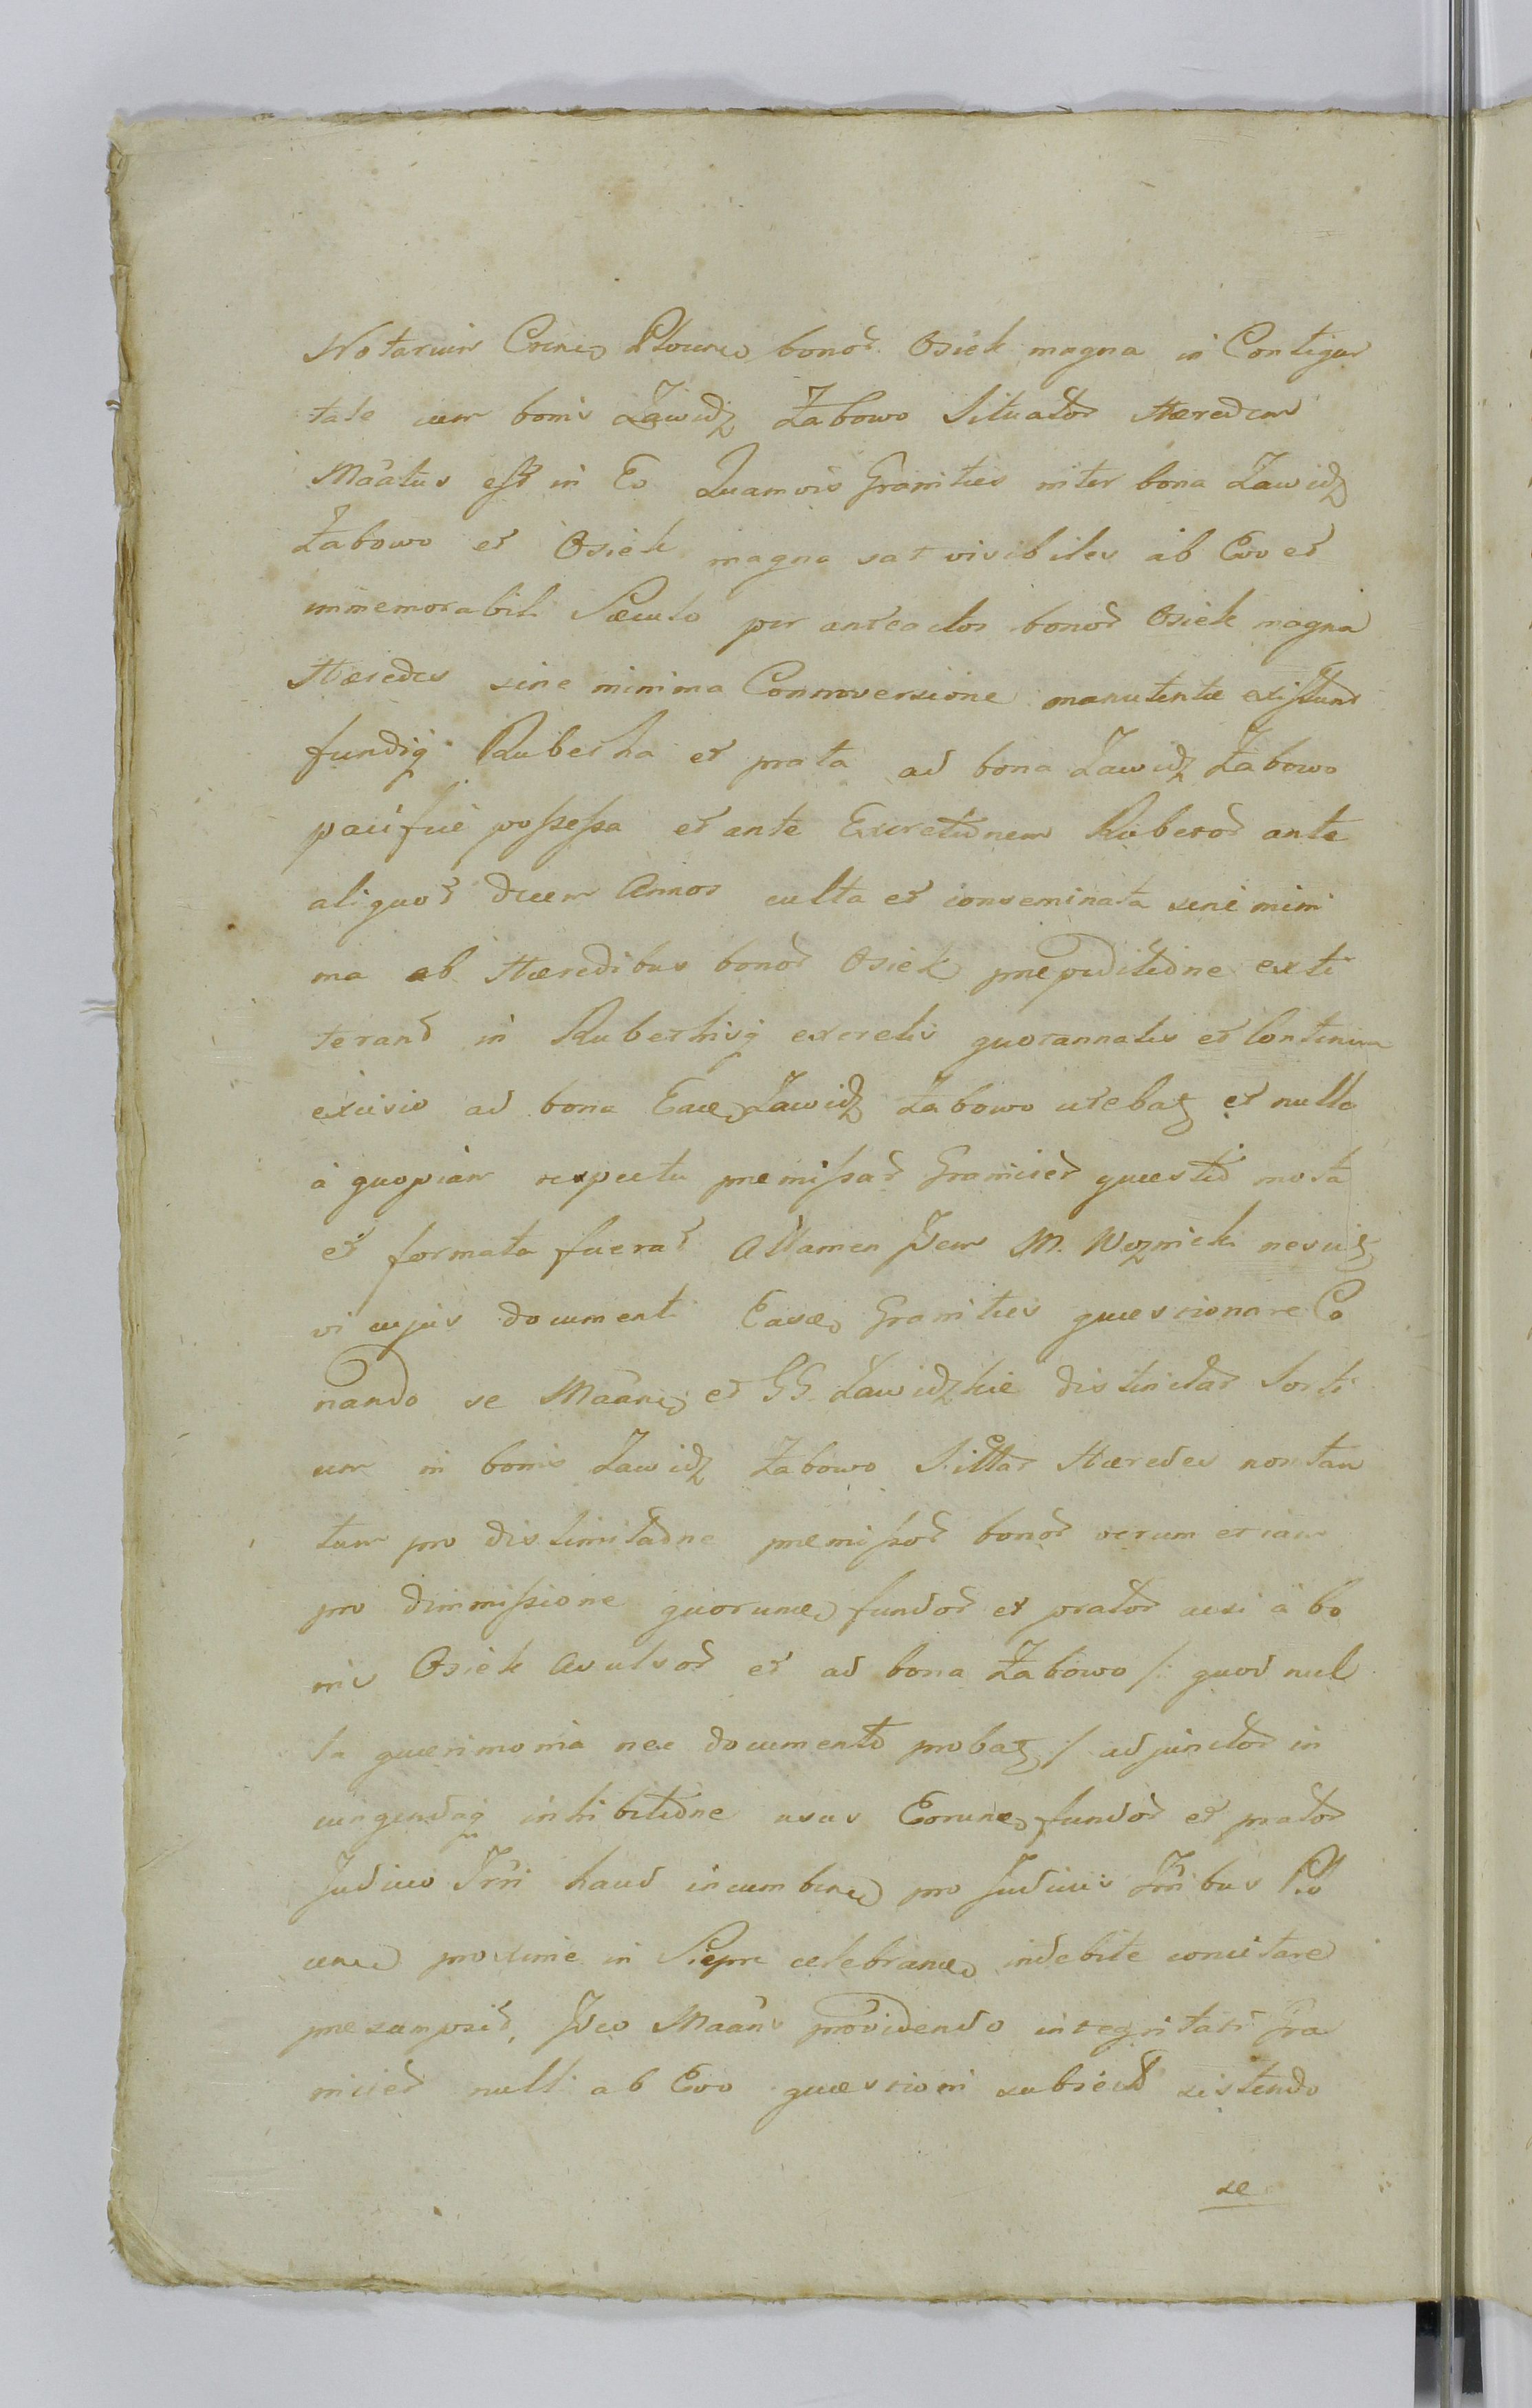 Notarium Crnen Plocnen bonor Osiek magna in Contigui
tate cum bonis Zawidz Żabowo Situator Hæredem
Măatus est in Eo Quamvis Granities inter bona Zawidz
Żabowo et Osiek magna sat visibiles ab Evo et
immemorabili Sæculo per anteactos bonor Osiek magna
Hæredes sine minima Controversione manutentæ existunt
fundiq Rubetha et prata ad bona Zawidz Żabowo
pacifice possessa et ante Excretionem Rubetor ante
aliquot decem Annos culta et conseminata sine mini
ma ab Hæredibus bonor Osiek præpeditione exti
terant in Rubethisq excretis quotannatis et Continua
excisio ad bona Eade Zawidz Żabowo utebat et nulla
à quopiam respectu præmissar Granicier quæstio mota
et formata fuerat Attamen Idem M. Woznicki nescit
vi cujus documenti Easde Granities quæstionare Co
nando se Măăne et GG. Zawidzkie distinctar Sorti
um in bonis Zawidz Żabowo Sittar Hæredes non tan
tum pro distinitadne præmissor bonor verum etiam
pro dimmissione quorunde fundor et prator acsi à bo
nis Osiek Avulsor et ad bona Żabowo /: quod nul
la querimonia nec documento probat :/ adjunctor in
jungendaq inhibitione usus Eorunde fundor et prator
Judicio Trri haud incumbene pro Judiciis Trribus Plo
cene proxime in Siepre celebrande indebite concitare
præsumpsit, Ideo Măans providendo integritati Gra
nicier nulli ab Evo quæstioni subject sistendo
se